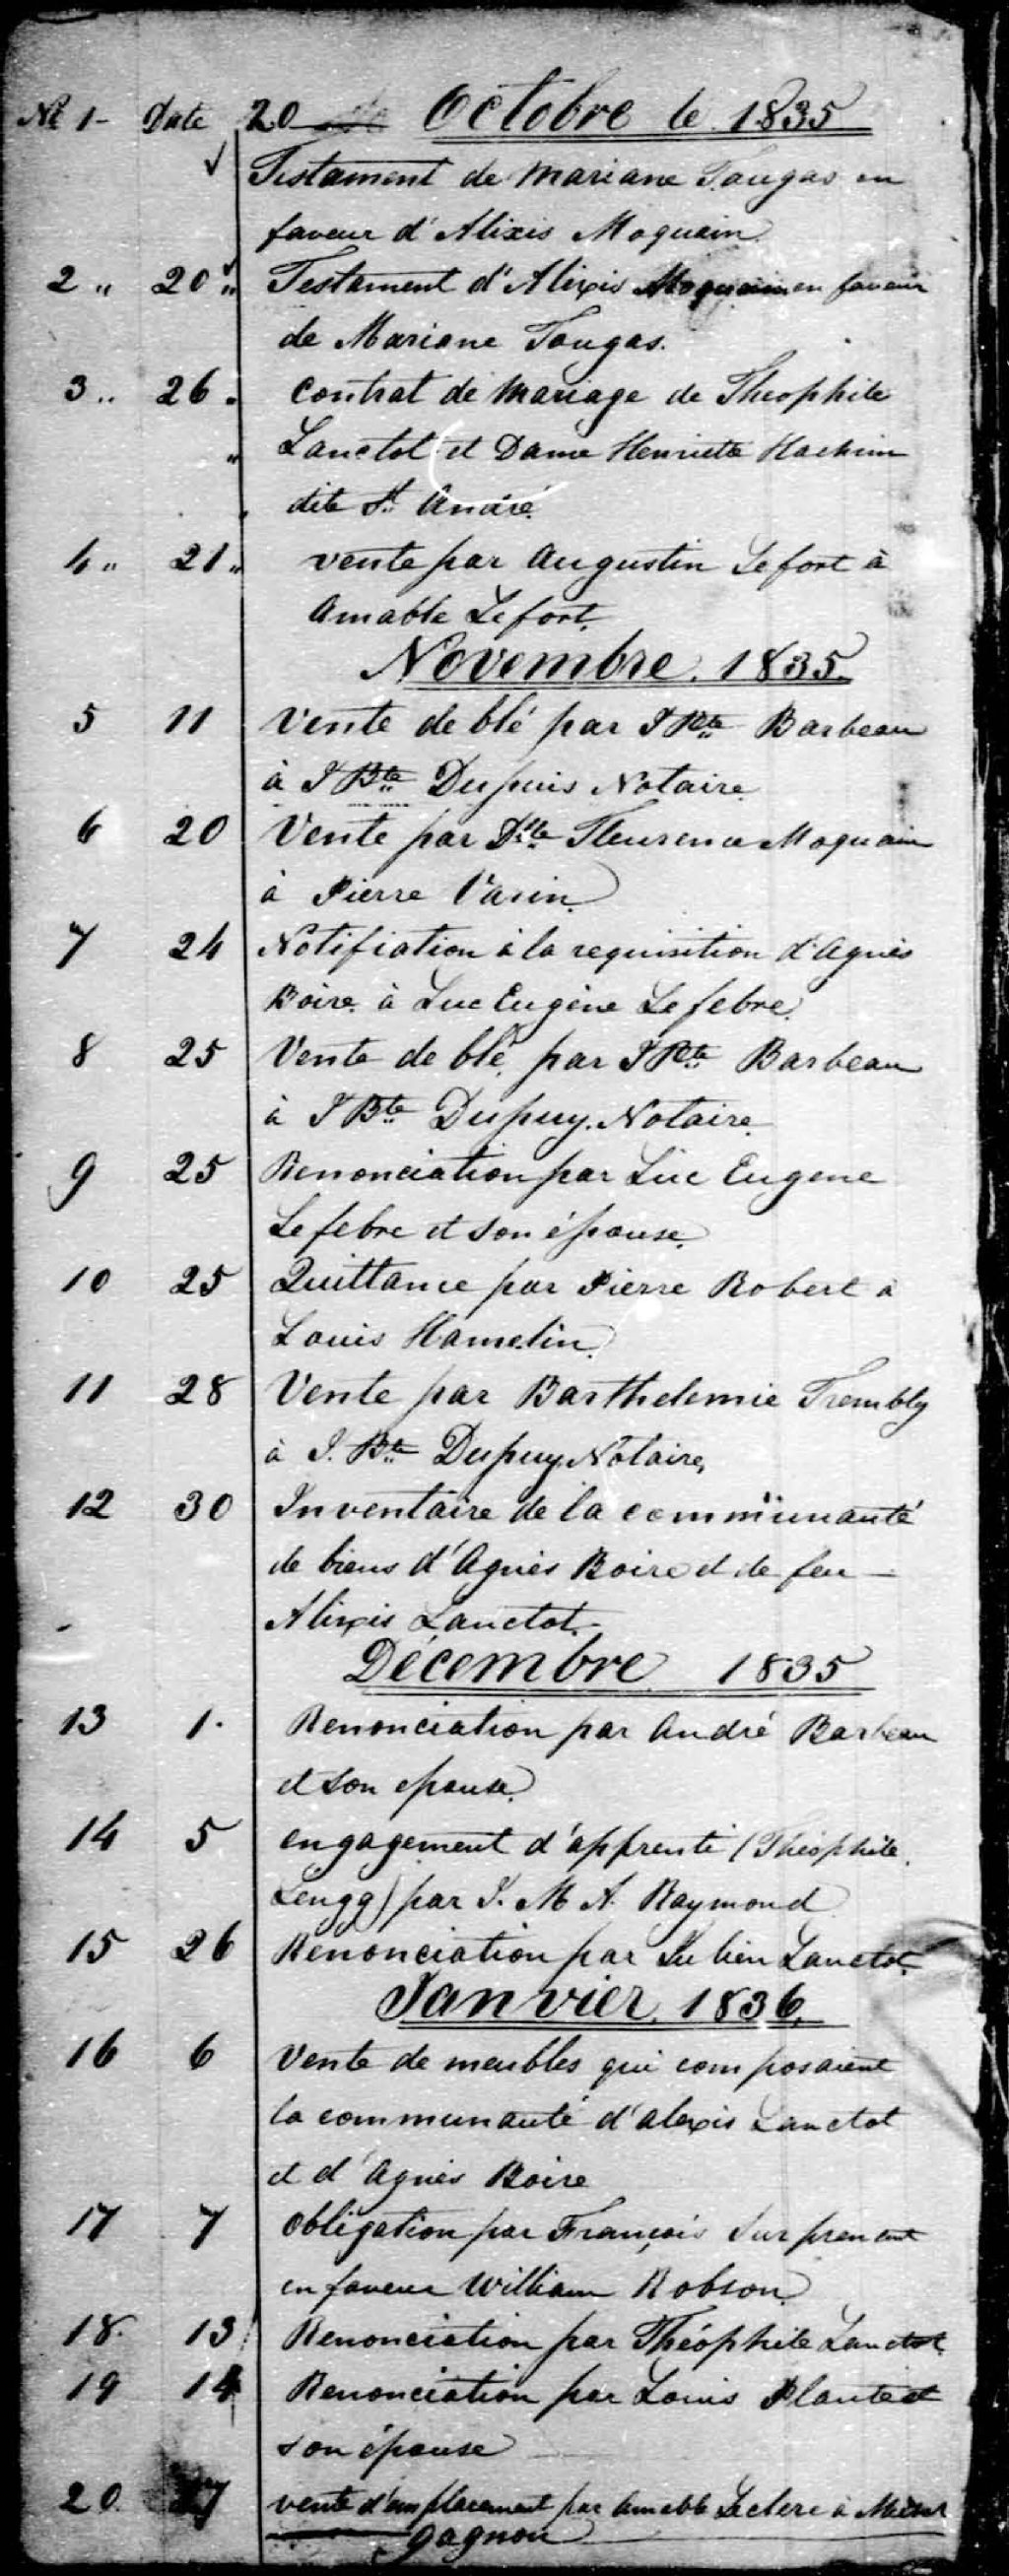 No 1 - Date 20 Octobre le 1835
Testament de Mariane Tougas en
faveur d'Alexis Moquain
2 " 20 " Testament d'Alexis Moquain en faveur
de Mariane Tougas.
3 " 26 " Contrat de Mariage de Theophile
" Lanctot et Dame Henriette Hachim
dite St. André
4 " 21 " vente par Augustin Lefort à
Amable Lefort.
Novembre. 1835.
5 11 Vente de blé par J Bte Barbeau
à J Bte Dupuis Notaire
6 20 Vente par Dlle Fleurence Moquain
à Pierre Varin
7 24 Notifiation à la requisition d'Agnès
Boire à Luc Eugène Lefebre
8 25 Vente de blé par J Bte Barbeau
à J Bte Dupuy. Notaire
9 25 Renonciation par Luc Eugene
Lefebre et son épouse
10 25 Quittance par Pierre Robert à
Louis Hamelin
11 28 Vente par Barthelemie Trembly
à J. Bte Dupuy Notaire,
12 30 Inventaire de la communauté
de biens d'Agnès Boire et de feu -
Alexis Lanctot.
Décembre 1835
13 1. Renonciation par André Barbeau
et son epouse
14 5 engagement d'apprenti (Théophile
Lengg) par J. M A. Raymond
15 26 Renonciation par Julien Lanctot.
Janvier. 1836.
16 6 Vente de meubles qui composaient
la communauté d'alexis Lanctot
et d'Agnès Boire
17 7 Obligation par François Surprenant
en faveur William Robson
18. 13 Renonciation par Théophile Lanctot
19 14 Renonciation par Louis Plante et
son épouse
20. 27 vente d'emplacement par Amable Leclerc à
Gagnon